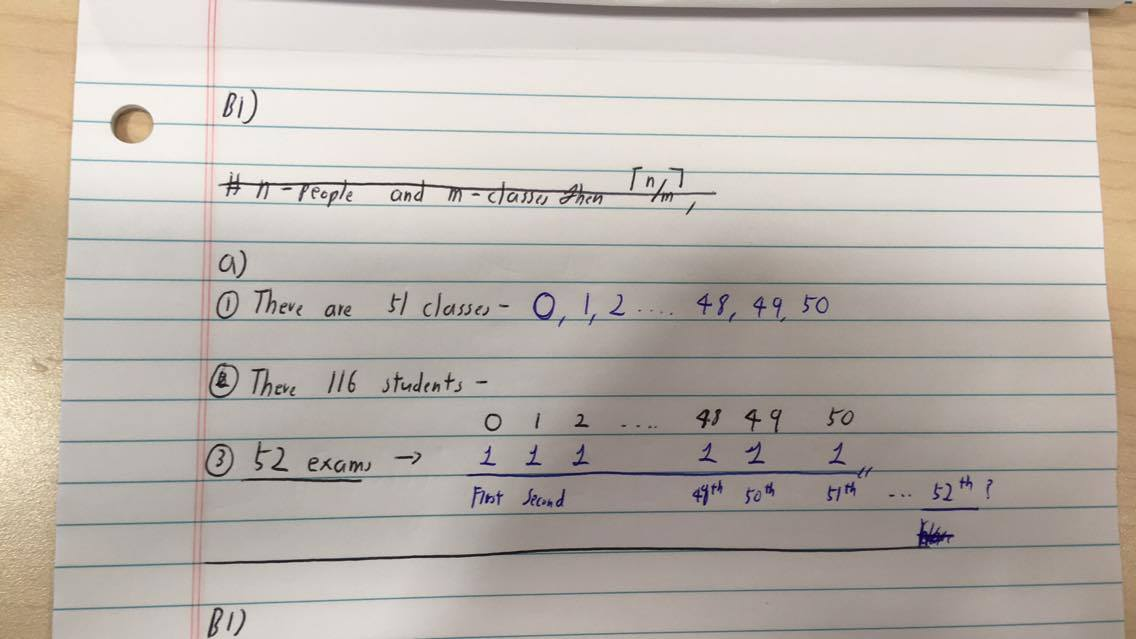 B1)
# n-people and m-classes then ⌈n/m⌉,
a)
① There are 51 classes - 0, 1, 2 .... 48, 49, 50
② There 116 students -
0 1 2 .... 48 49 50
③ 52 exams → 1 1 1 1 1 1
First Second 49th 50th 51th ... 52th ?
B1)